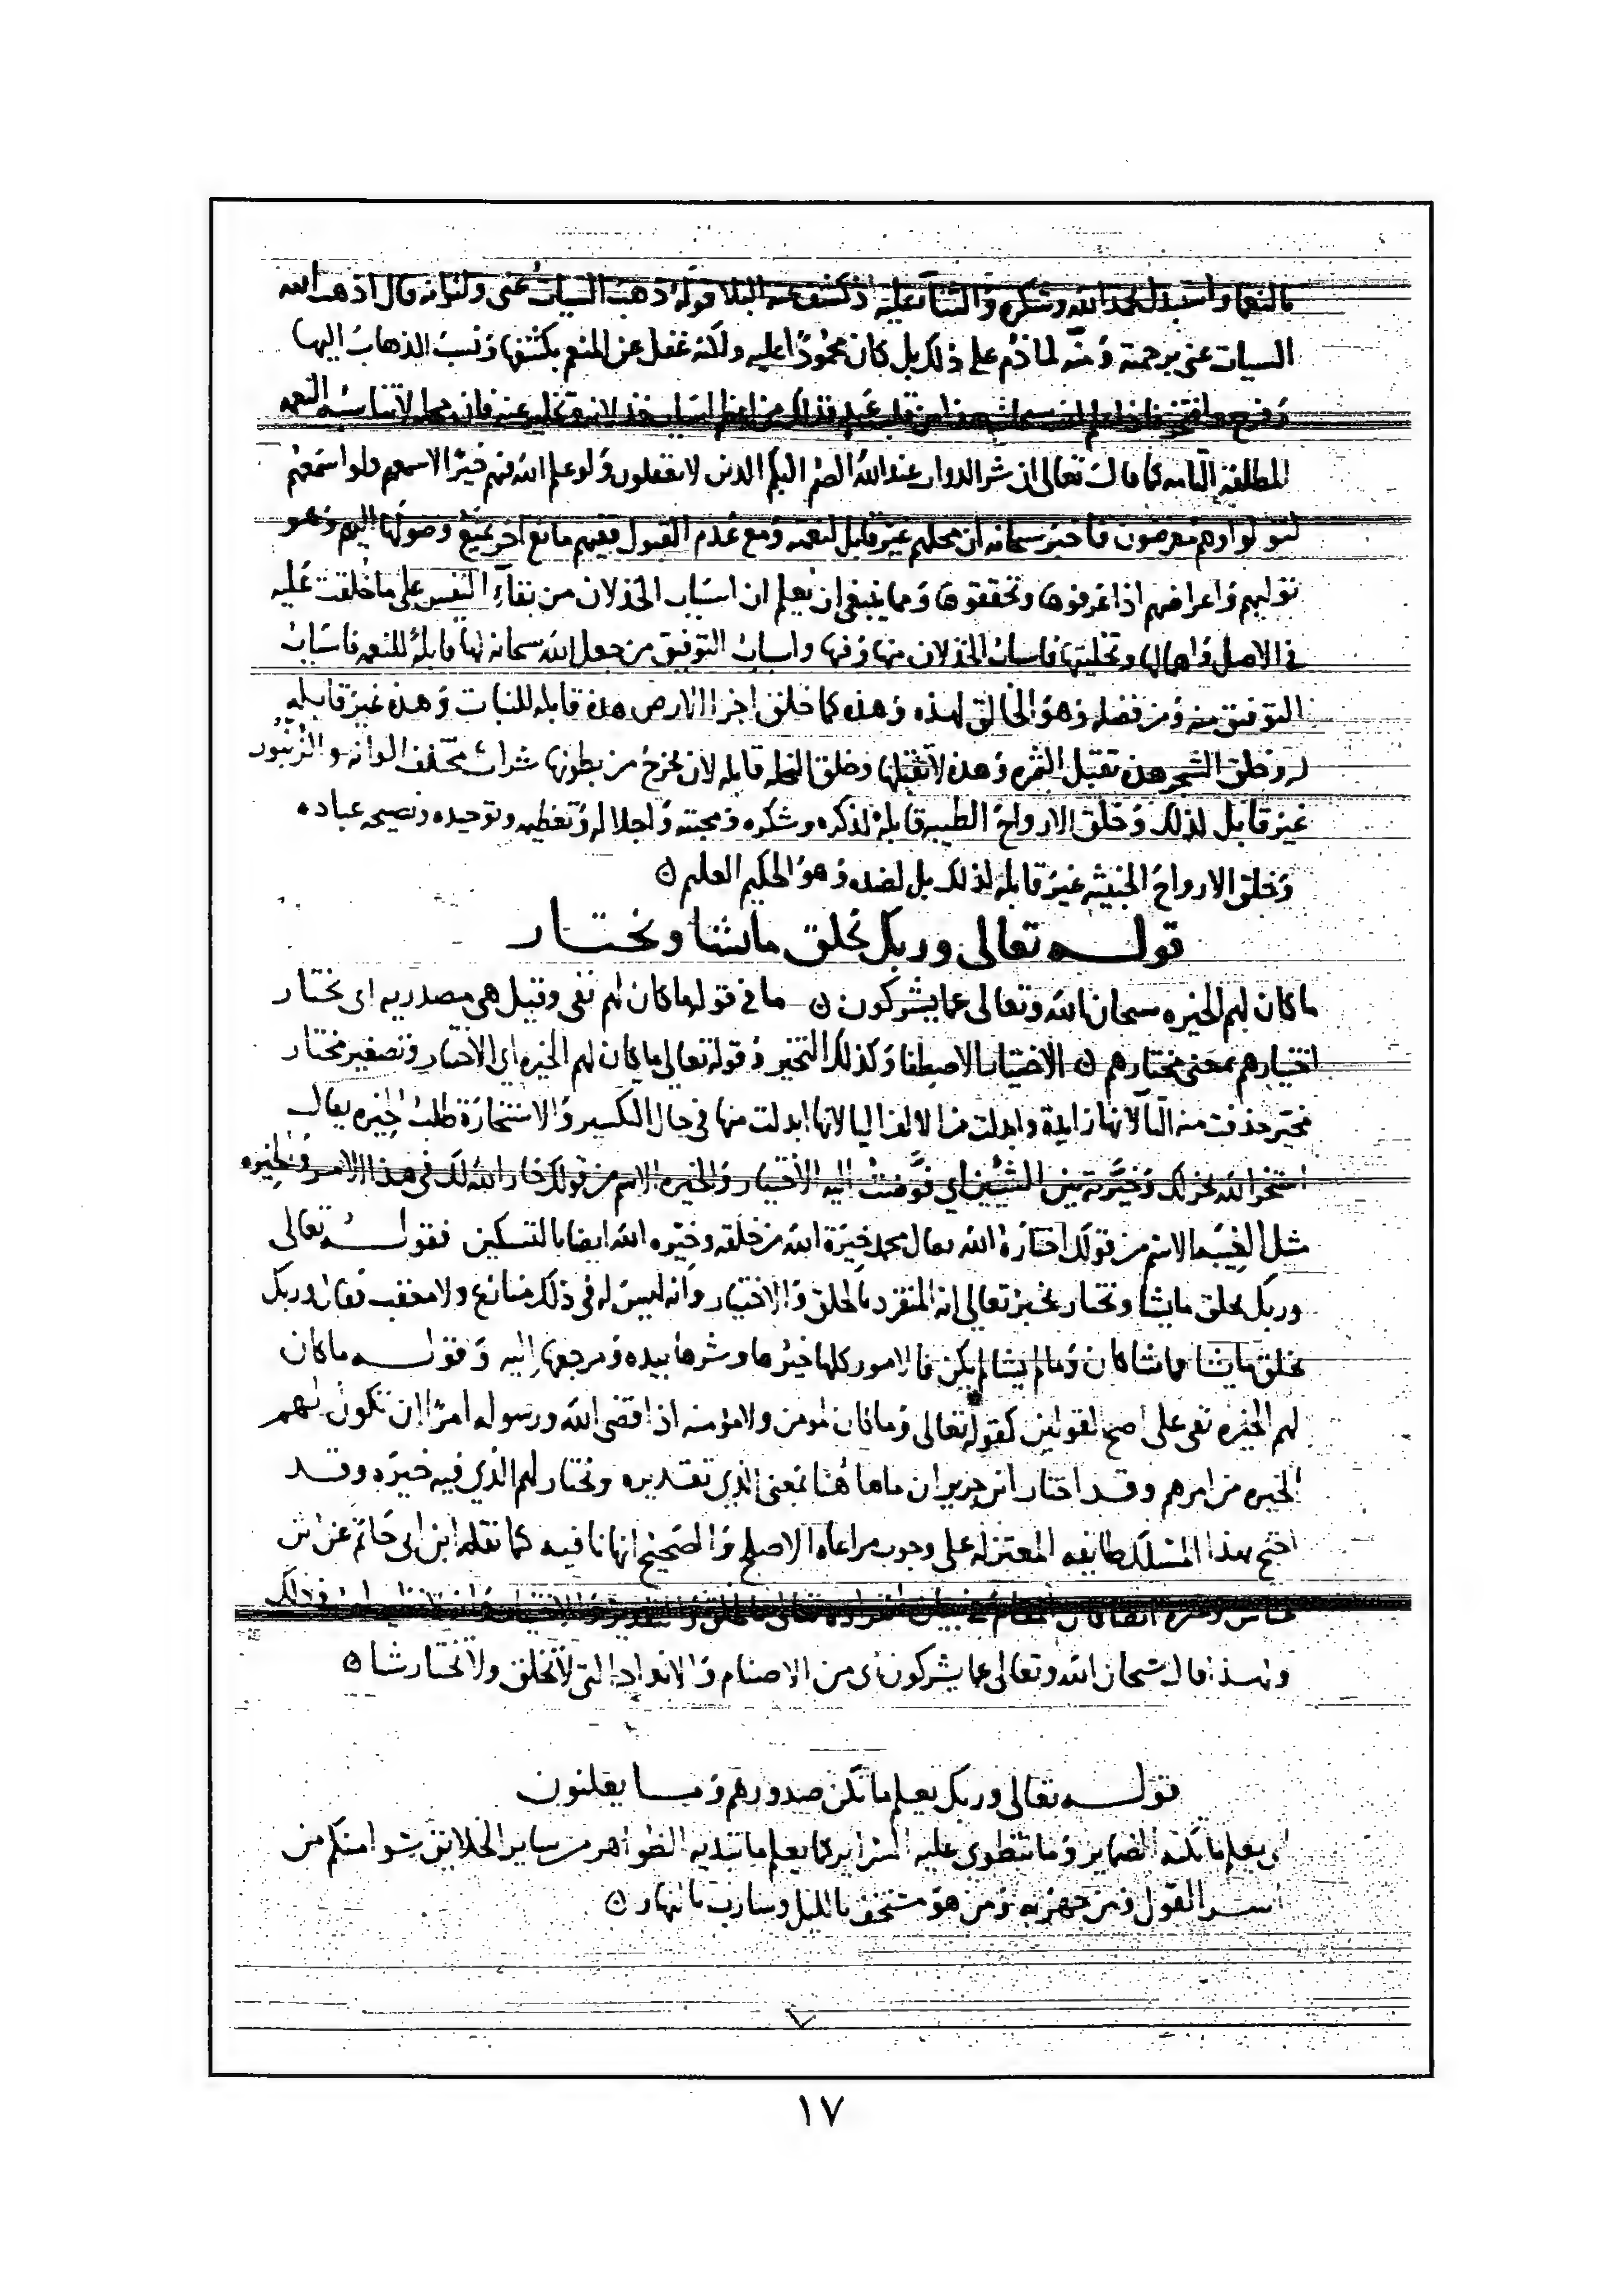 بالنعما واستبدل بحمد الله وشكره والثنا عليه اذ كشف عنه البلا قوله ذهب السيات عنى ولو انه قال اذهب الله
السيات عنى برحمته ومنه لما ذم على ذلك بل كان محمودًا عليه ولكنه غفل عن المنعم بكشفها ونسب الذهاب اليها
وفرح وافتخر فاذا علم الله سبحانه هذا من قلب عبد فذلك من اعظم اسباب خذلانه وتخليه عنه فان محله لا تناسبه النعمه
المطلقة التامه كما قال تعالى ان شر الدواب عند الله الصم البكم الذين لا يعقلون ولو علم الله فيهم خيرًا لاسمعهم ولو اسمعهم
لتولوا وهم معرضون فاخبر سبحانه ان محلهم غير قابل لنعمته ومع عدم القبول ففيهم مانع اخر يمنع وصولها اليهم وهو
توليهم واعراضهم اذا عرفوها وتحققوها ومما ينبغى ان يعلم ان اسباب الخذلان من بقآء النفس على ما خلقت عليه
فى الاصل واهمالها وتخليتها فاسباب الخذلان منها وفيها واسباب التوفيق من جعل الله سبحانه لها قابلة للنعمه فاسباب
التوفيق منه ومن فضله وهو الخالق لهذه وهذه كما خلق اجزا الارض هذه قابله للنبات وهذه غير قابله
له وخلق الشجر هذه تقبل الثمره وهذه لا تقبلها وخلق النحله قابله لان يخرج من بطونها شراب مختلف الوانه والزنبور
غير قابل لذلك وخلق الارواح الطيبه قابلة لذكره وشكره ومحبته واجلاله وتعظيمه وتوحيده ونصيحه عباده
وخلق الارواح الخبيثه غير قابله لذلك بل لضده وهو الحكيم العليم ٥
قولـــه تعالى وربك يخلق ما يشا ويختـــار
ما كان لهم الخيره سبحان الله وتعالى عما يشركون ٥ ما فى قوله ما كان لهم نفى وقيل هى مصدريه اى يختار
اختيارهم بمعنى مختارهم ٥ الاختيار الاصطفا وكذلك التخير وقوله تعالى ما كان لهم الخيره اى الاختيار وتصغير مختار
مخير حذفت منه التآ لانها زايدة وابدلت من الالف اليا لانها ابدلت منها فى حال التكسير والاستخارة طلب الخيره يقال
استخر الله يخر لك وخيرته بين الشيئين اي فوضت اليه الاختيار والخيره الاسم من قولك خار الله لك فى هذا الامر والخيره
مثل العنبه الاسم من قولك اختارة الله يقال محمد خيرة الله من خلقه وخيره الله ايضا بالتسكين فقولـــه تعالى
وربك يخلق ما يشا ويختار يخبر تعالى انه المنفرد بالخلق والاختيار وانه ليس له فى ذلك منازع ولا معقب فقال وربك
يخلق ما يشا فما شا كان وما لم يشا لم يكن فالامور كلها خيرها وشرها بيده ومرجعها اليه وقولـــه ما كان
لهم الخيره نفى على اصح القولين كقوله تعالى وما كان لمومن ولا مؤمنه اذا قضى الله ورسوله امرًا ان تكون لهم
الخيره من امرهم وقد اختار ابن جرير ان ما هاهنا بمعنى الذي تقديره ويختار لهم الذي فيه خيره وقد
احتج بهذا المسلك طايفه المعتزله على وجوب مراعاه الاصلح والصحيح انها نافيه كما نقله ابن ابى حاتم عن ابن
عباس وغيره ايضا فان المقام فى بيان انفراده تعالى بالخلق والتقدير والاختيار وانه لا نظير له فى ذلك
ولهذا قال سبحان الله وتعالى عما يشركون اى من الاصنام والانداد التى لا تخلق ولا تختار شيا ٥
قولـــه تعالى وربك يعلم ما تكن صدورهم ومـــا يعلنون
اى يعلم ما تكنه الضماير وما تنطوى عليه السراير كما يعلم ما تبديه الظواهر من ساير الخلايق سوا منكم من
اسر القول ومن جهر به ومن هو مستخف بالليل وسارب بالنهار ٥
٧
١٧